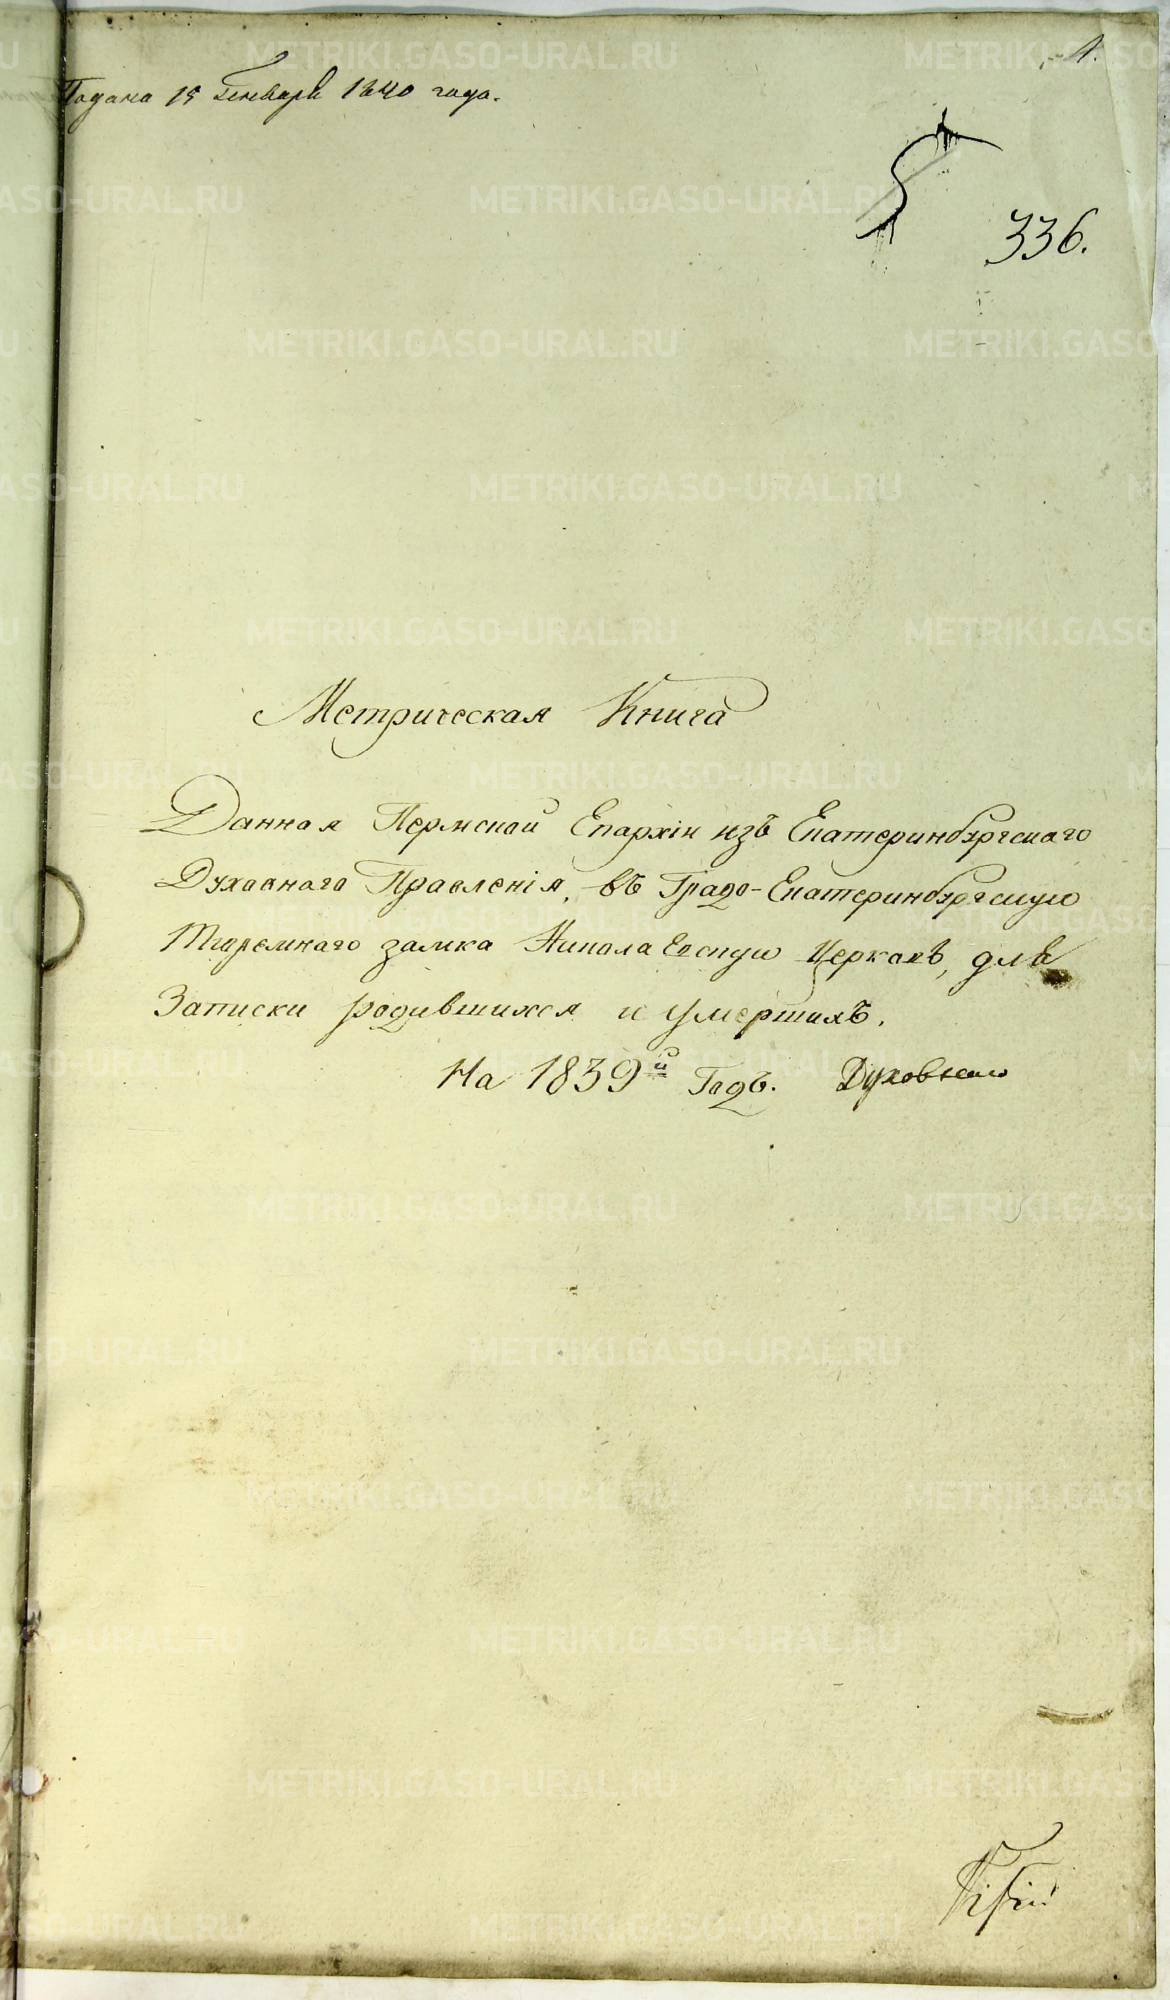 1.
Подана 15 Генваря 1840 года.
336.
Метрическая Книга
Данная Пермской Епархіи изъ Екатеринбургскаго
Духовнаго Правленія, въ Градо-Екатеринбургскую
Тюремнаго замка Николаевскую Церковь, для
Записки родившихся и умершихъ.
На 1839й Годъ. Духовнаго